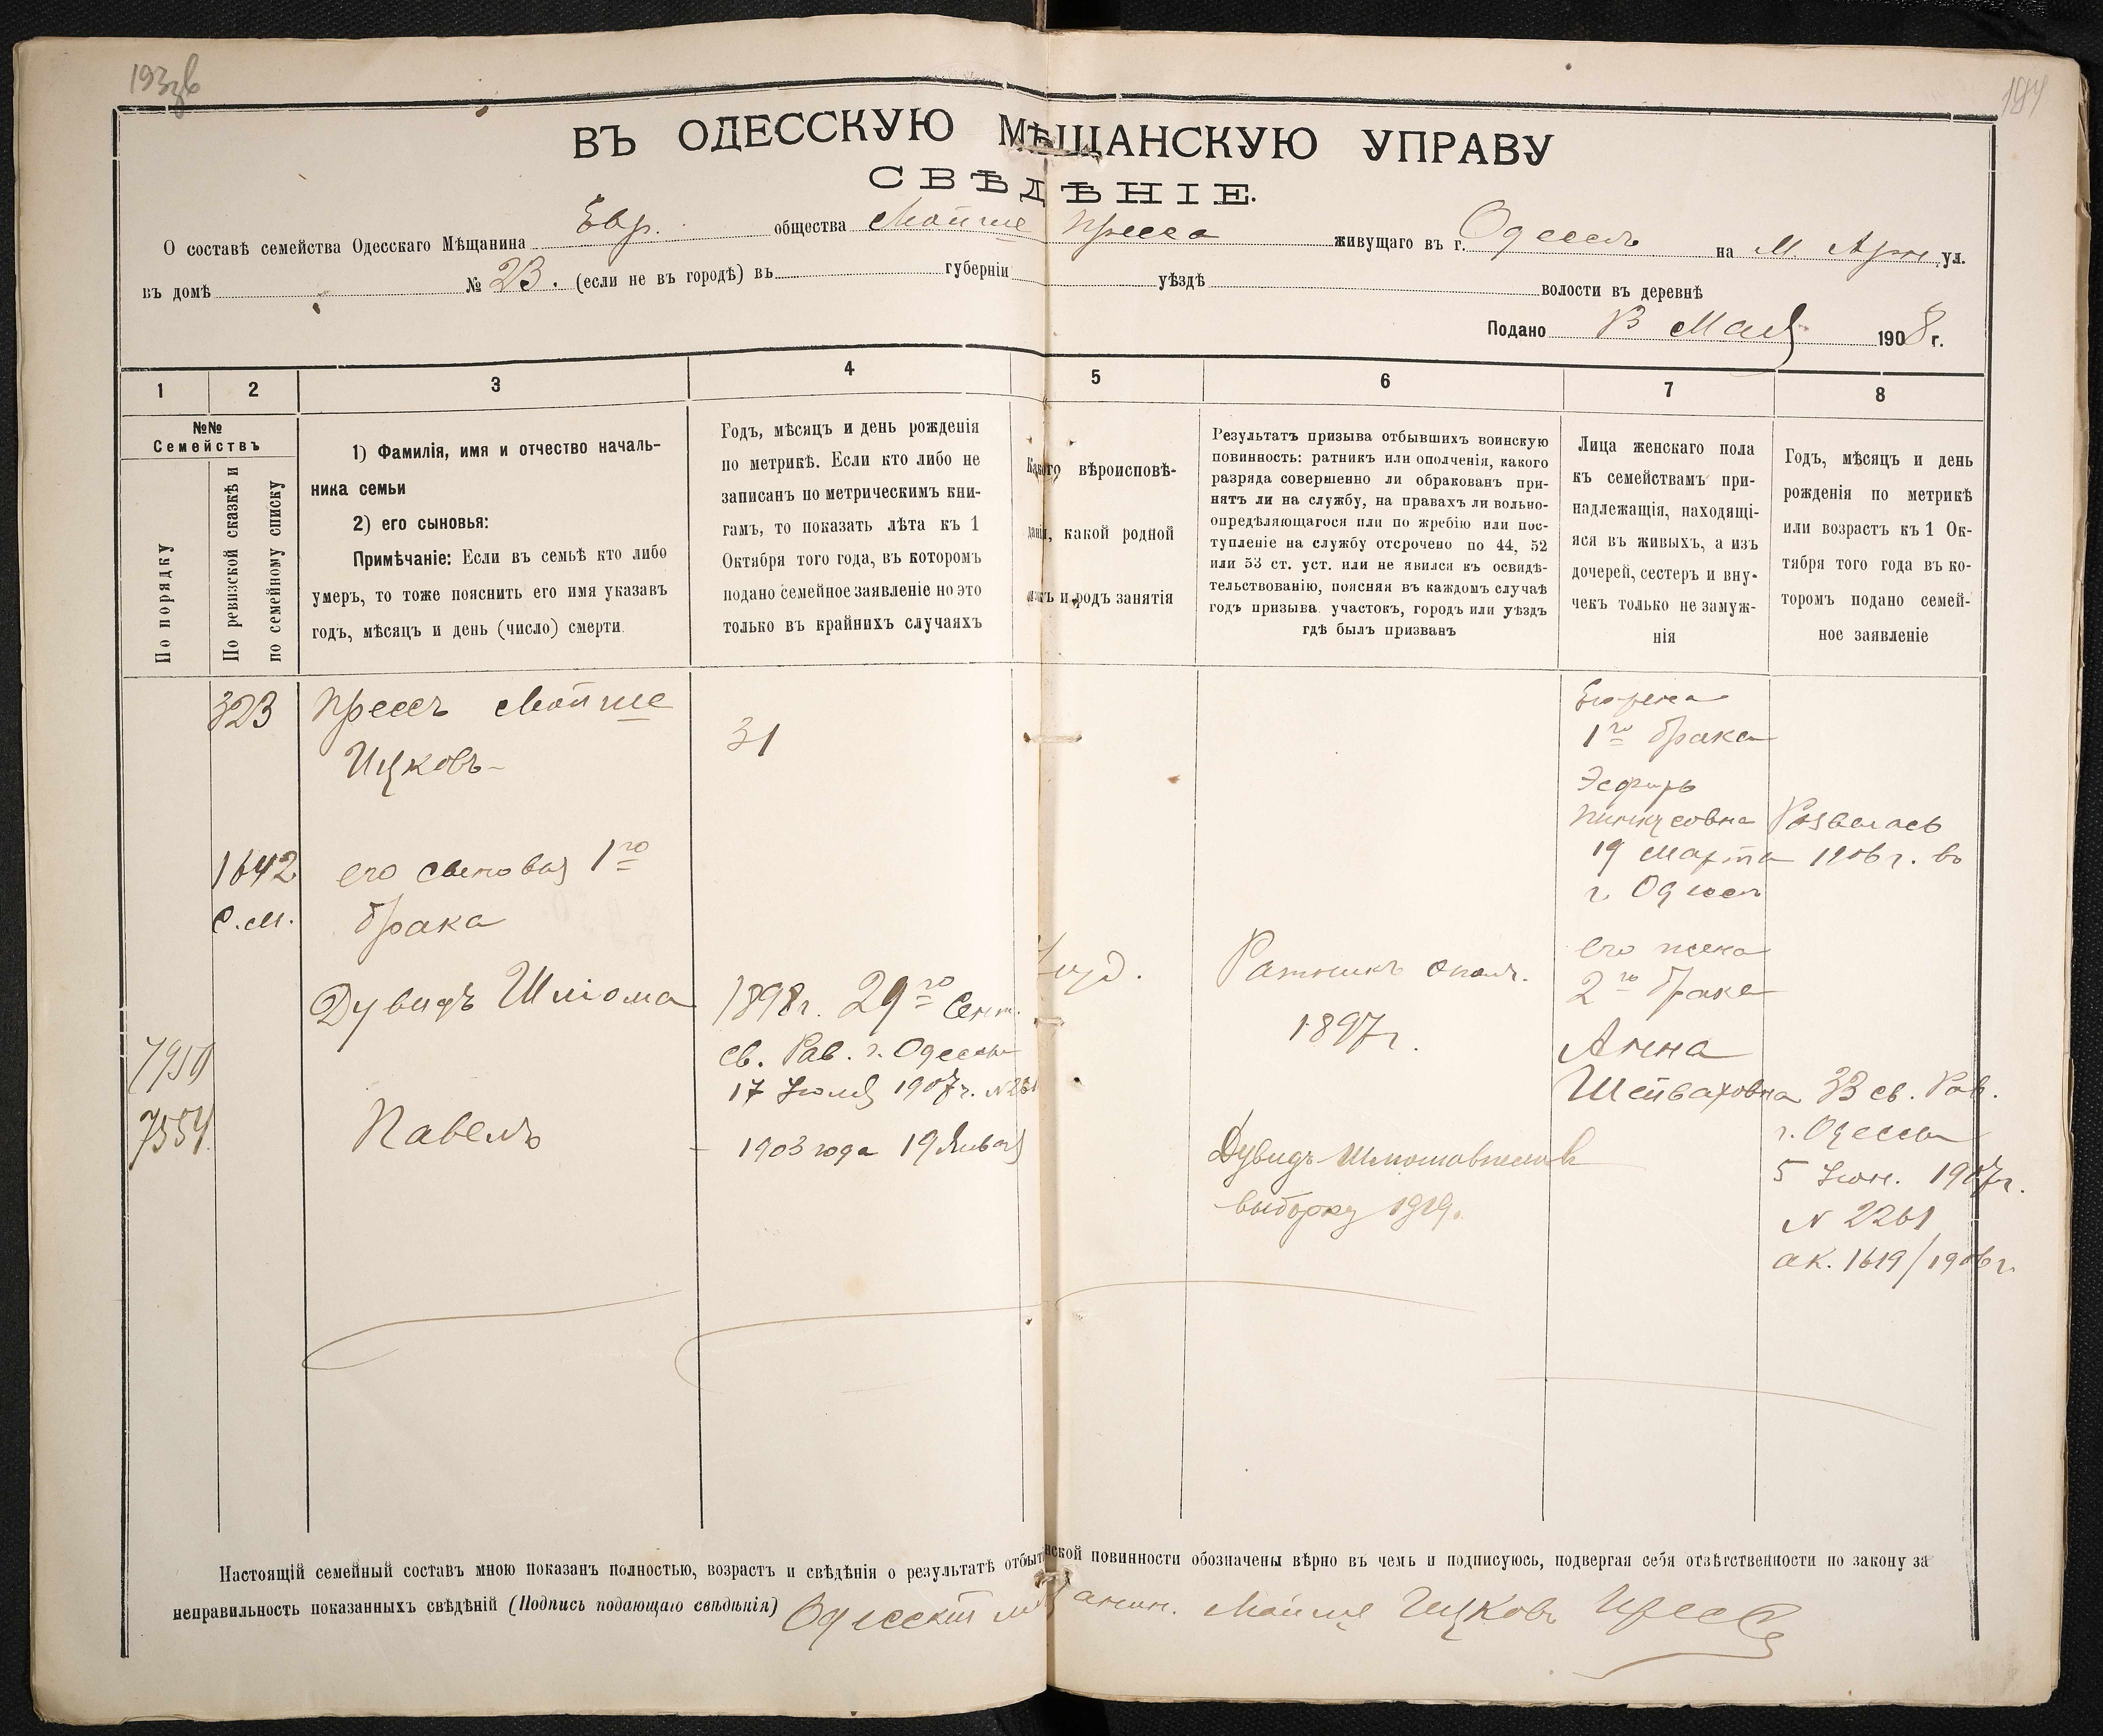 193зв
194
ВЪ ОДЕССКУЮ МѢЩАНСКУЮ УПРАВУ
СВѢДѢНІЕ.
О составѣ семейства Одесскаго Мѣщанина Евр. общества Мойше Пресса живущаго въ г. Одессѣ на М. Арн. ул.
въ домѣ № 23. (если не въ городѣ) въ губерніи уѣздѣ волости въ деревнѣ
Подано 13 Мая 1908 г.
1 2 3 4 5 6 7 8
№№
Семействъ
По порядку
По ревизской сказкѣ и
по семейному списку
1) Фамилія, имя и отчество началь-
ника семьи
2) его сыновья:
Примѣчаніе: Если въ семьѣ кто либо
умеръ, то тоже пояснить его имя указавъ
годъ, мѣсяцъ и день (число) смерти.
Годъ, мѣсяцъ и день рожденія
по метрикѣ. Если кто либо не
записанъ по метрическимъ кни-
гамъ, то показать лѣта къ 1
Октября того года, въ которомъ
подано семейное заявленіе но это
только въ крайнихъ случаяхъ
Какого вѣроисповѣ-
данія, какой родной
языкъ и родъ занятія
Результатъ призыва отбывшихъ воинскую
повинность: ратникъ или ополченія, какого
разряда совершенно ли обракованъ при-
нятъ ли на службу, на правахъ ли вольно-
опредѣляющагося или по жребію или пос-
тупленіе на службу отсрочено по 44, 52
или 53 ст. уст. или не явился къ освидѣ-
тельствованію, поясняя въ каждомъ случаѣ
годъ призыва. участокъ, городъ или уѣздъ
гдѣ былъ призванъ
Лица женскаго пола
къ семействамъ при-
надлежащія, находящі-
яся въ живыхъ, а изъ
дочерей, сестеръ и вну-
чекъ только не замуж-
нія
Годъ, мѣсяцъ и день
рожденія по метрикѣ
или возрастъ къ 1 Ок-
тября того года въ ко-
торомъ подано семей-
ное заявленіе
323
Прессъ Мойше
Ицковъ
31
1642
С.М.
его сыновья 1го
брака
Дувидъ Шліома
1898г. 29го Сент.
св. Рав. г. Одессы
17 Іюля 1907г. №
7554
Павелъ
1903 года 19 Января
Іуд.
Ратникъ опол.
1897г.
Дувидъ
выборку 1919.
1го брака
Эсфирь
Пинкусовна Развелась
19 Марта 1906г. въ
г. Одессѣ
его жена
2го брака
Анна
Шейваховна 33 св. Рав.
г. Одессы
5 Іюн. 1907г.
N 2261
ак. 1619/1906г.
Настоящій семейный составъ мною показанъ полностью, возрастъ и свѣдѣнія о результатѣ отбыт нской повинности обозначены вѣрно въ чемъ и подписуюсь, подвергая себя отвѣтственности по закону за
неправильность показанныхъ свѣдѣній (Подпись подающаго свѣдѣнія) Одесскій мѣщанин. Мойше Ицковъ Прессъ